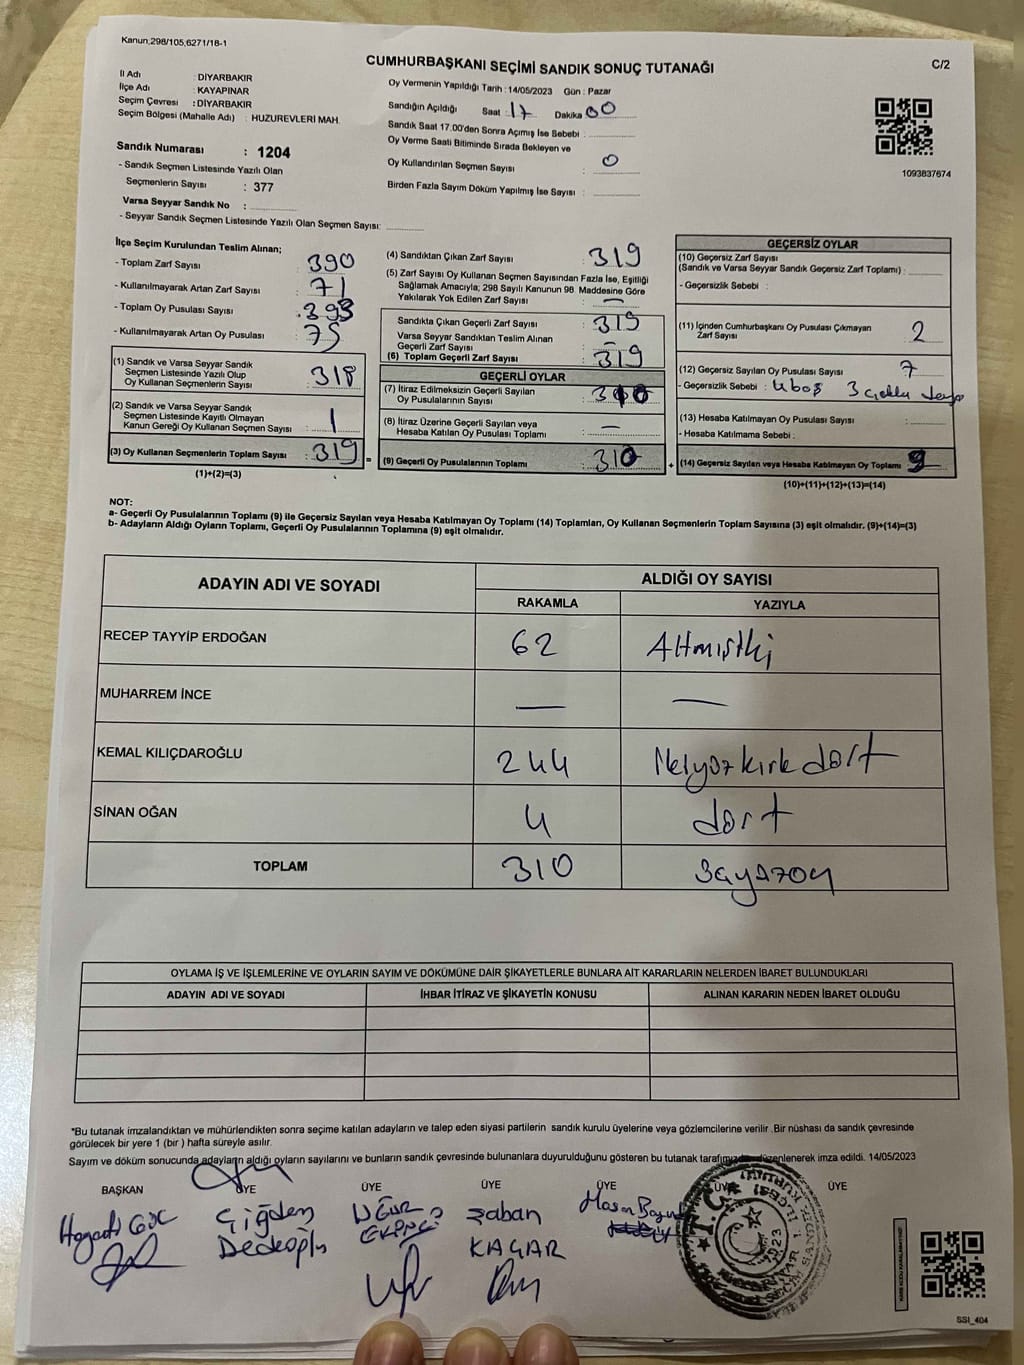 Kanun,298/105,6271/18-1
CUMHURBAŞKANI SEÇİMİ SANDIK SONUÇ TUTANAĞI
C/2
İl Adı : DİYARBAKIR
İlçe Adı : KAYAPINAR
Seçim Çevresi : DİYARBAKIR
Seçim Bölgesi (Mahalle Adı) : HUZUREVLERİ MAH.
Sandık Numarası : 1204
- Sandık Seçmen Listesinde Yazılı Olan
Seçmenlerin Sayısı : 377
Varsa Seyyar Sandık No :
- Seyyar Sandık Seçmen Listesinde Yazılı Olan Seçmen Sayısı:
Oy Vermenin Yapıldığı Tarih : 14/05/2023 Gün : Pazar
Sandığın Açıldığı Saat : 17 Dakika 00
Sandık Saat 17.00'den Sonra Açımış İse Sebebi :
Oy Verme Saati Bitiminde Sırada Bekleyen ve
Oy Kullandırılan Seçmen Sayısı : 0
Birden Fazla Sayım Döküm Yapılmış İse Sayısı :
1093837674
İlçe Seçim Kurulundan Teslim Alınan;
- Toplam Zarf Sayısı : 390
- Kullanılmayarak Artan Zarf Sayısı : 71
- Toplam Oy Pusulası Sayısı : 393
- Kullanılmayarak Artan Oy Pusulası : 75
(1) Sandık ve Varsa Seyyar Sandık
Seçmen Listesinde Yazılı Olup
Oy Kullanan Seçmenlerin Sayısı : 318
(2) Sandık ve Varsa Seyyar Sandık
Seçmen Listesinde Kayıtlı Olmayan
Kanun Gereği Oy Kullanan Seçmen Sayısı : 1
(3) Oy Kullanan Seçmenlerin Toplam Sayısı : 319
(1)+(2)=(3)
=
(4) Sandıktan Çıkan Zarf Sayısı : 319
(5) Zarf Sayısı Oy Kullanan Seçmen Sayısından Fazla İse, Eşitliği
Sağlamak Amacıyla; 298 Sayılı Kanunun 98. Maddesine Göre
Yakılarak Yok Edilen Zarf Sayısı : —
Sandıkta Çıkan Geçerli Zarf Sayısı : 319
Varsa Seyyar Sandıktan Teslim Alınan
Geçerli Zarf Sayısı : —
(6) Toplam Geçerli Zarf Sayısı : 319
GEÇERLİ OYLAR
(7) İtiraz Edilmeksizin Geçerli Sayılan
Oy Pusulalarının Sayısı : 310
(8) İtiraz Üzerine Geçerli Sayılan veya
Hesaba Katılan Oy Pusulası Toplamı : —
(9) Geçerli Oy Pusulalarının Toplamı : 310
+
GEÇERSİZ OYLAR
(10) Geçersiz Zarf Sayısı
(Sandık ve Varsa Seyyar Sandık Geçersiz Zarf Toplamı) :
- Geçersizlik Sebebi :
(11) İçinden Cumhurbaşkanı Oy Pusulası Çıkmayan
Zarf Sayısı : 2
(12) Geçersiz Sayılan Oy Pusulası Sayısı : 7
- Geçersizlik Sebebi : 4 boş 3
(13) Hesaba Katılmayan Oy Pusulası Sayısı :
- Hesaba Katılmama Sebebi :
(14) Geçersiz Sayılan veya Hesaba Katılmayan Oy Toplamı : 9
(10)+(11)+(12)+(13)=(14)
NOT:
a- Geçerli Oy Pusulalarının Toplamı (9) ile Geçersiz Sayılan veya Hesaba Katılmayan Oy Toplamı (14) Toplamları, Oy Kullanan Seçmenlerin Toplam Sayısına (3) eşit olmalıdır. (9)+(14)=(3)
b- Adayların Aldığı Oyların Toplamı, Geçerli Oy Pusulalarının Toplamına (9) eşit olmalıdır.
ADAYIN ADI VE SOYADI
ALDIĞI OY SAYISI
RAKAMLA YAZIYLA
RECEP TAYYİP ERDOĞAN 62 Altmışiki
MUHARREM İNCE — —
KEMAL KILIÇDAROĞLU 244 İkiyüzkırkdört
SİNAN OĞAN 4 dört
TOPLAM 310 3ayüzon
OYLAMA İŞ VE İŞLEMLERİNE VE OYLARIN SAYIM VE DÖKÜMÜNE DAİR ŞİKAYETLERLE BUNLARA AİT KARARLARIN NELERDEN İBARET BULUNDUKLARI
ADAYIN ADI VE SOYADI İHBAR İTİRAZ VE ŞİKAYETİN KONUSU ALINAN KARARIN NEDEN İBARET OLDUĞU
*Bu tutanak imzalandıktan ve mühürlendikten sonra seçime katılan adayların ve talep eden siyasi partilerin sandık kurulu üyelerine veya gözlemcilerine verilir .Bir nüshası da sandık çevresinde
görülecek bir yere 1 (bir ) hafta süreyle asılır.
Sayım ve döküm sonucunda adayların aldığı oyların sayılarını ve bunların sandık çevresinde bulunanlara duyurulduğunu gösteren bu tutanak tarafımızdan düzenlenerek imza edildi. 14/05/2023
BAŞKAN ÜYE ÜYE ÜYE ÜYE ÜYE ÜYE
Çiğdem
UĞUR
EKİNCİ
Şaban
KAÇAR
Hasan
T.C.
2023
SSI_404